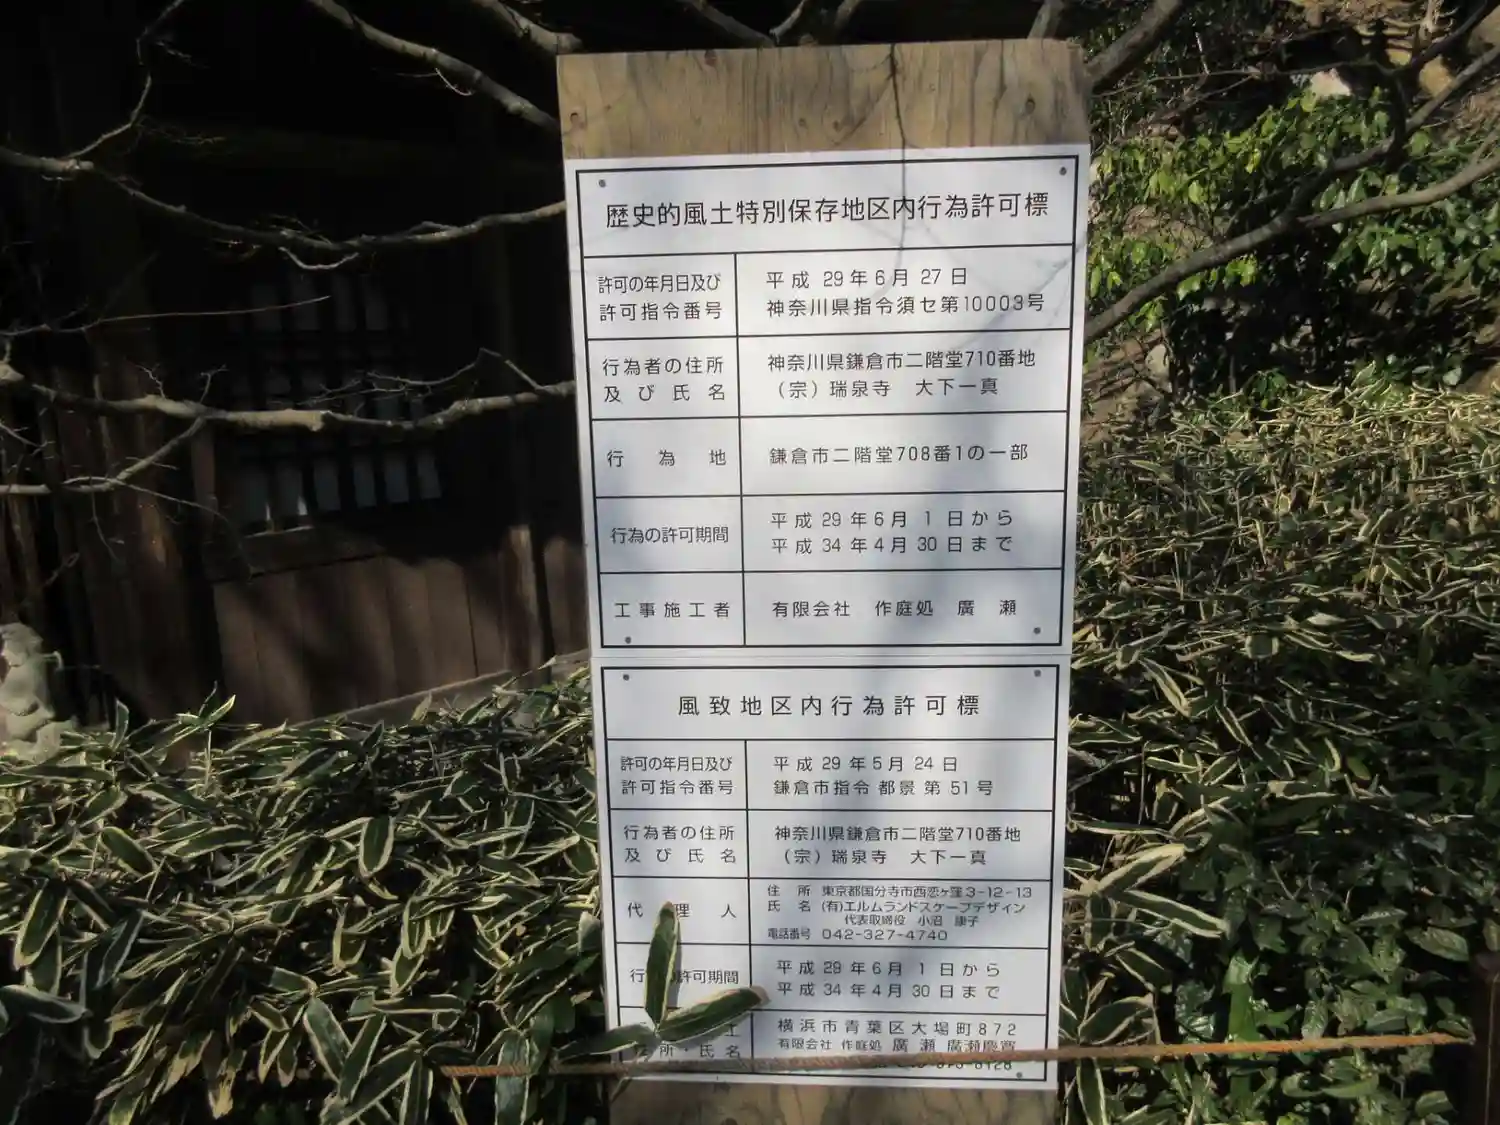 歴史的風土特別保存地区内行為許可標
許可の年月日及び
許可指令番号
平成 29年6月 27日
神奈川県指令須セ第10003号
行為者の住所
及び氏名
神奈川県鎌倉市二階堂710番地
（宗）瑞泉寺 大下一真
行為地
鎌倉市二階堂708番1の一部
行為の許可期間
平成 29年6月 1日から
平成 34年4月 30日まで
工事施工者
有限会社 作庭処 廣瀬
風致地区内行為許可標
許可の年月日及び
許可指令番号
平成 29年5月 24日
鎌倉市指令 都景 第 51号
行為者の住所
及び氏名
神奈川県鎌倉市二階堂710番地
（宗）瑞泉寺 大下一真
代理人
住所 東京都国分寺市西恋ヶ窪3-12-13
氏名 (有)エルムランドスケープデザイン
代表取締役 小沼 康子
電話番号 042-327-4740
行 許可期間
平成 29年6月 1日から
平成 34年4月 30日まで
住所・氏名
横浜市青葉区大場町872
有限会社 作庭処 廣瀬 廣瀬慶寛